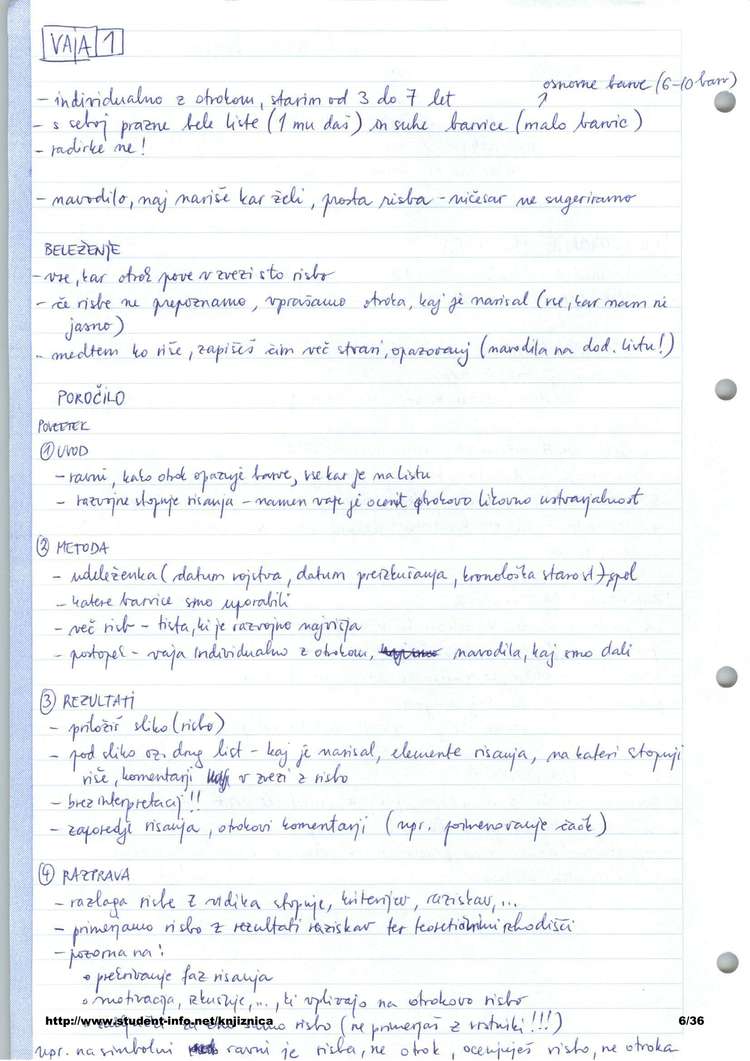 VAJA 1
osnovne barve (6-10 barv)
- individualno z otrokom, starim od 3 do 7 let
- s seboj prazne bele liste (1 mu daš) in suhe barvice (malo barvic)
- radirke ne!
- navodilo, naj nariše kar želi, prosta risba - ničesar ne sugeriramo
BELEŽENJE
- vse, kar otrok pove v zvezi s to risbo
- če risbe ne prepoznamo, vprašamo otroka, kaj je narisal (vse, kar nam ni
jasno)
- medtem ko riše, zapišeš čim več stvari, opazovanj (navodila na dod. listu!)
POROČILO
POVZETEK
① UVOD
- ravni, kako otrok opazuje barve, vse kar je na listu
- razvojne stopnje risanja - namen vaje je ocenit otrokovo likovno ustvarjalnost
② METODA
- udeleženka (datum rojstva, datum preizkušanja, kronološka starost) + spol
- katere barvice smo uporabili
- več risb - tista, ki je razvojno najvišja
- postopek - vaja individualno z otrokom, navodila, kaj smo dali
③ REZULTATI
- priložiš sliko (risbo)
- pod sliko oz. drug list - kaj je narisal, elemente risanja, na kateri stopnji
riše, komentarji v zvezi z risbo
- brez interpretacij!!
- zaporedje risanja, otrokovi komentarji (npr. poimenovanje čačk)
④ RAZPRAVA
- razlaga risbe z vidika stopnje, kriterijev, raziskav, ...
- primerjamo risbo z rezultati raziskav ter teoretičnimi izhodišči
- pozorna na:
o prekrivanje faz risanja
o motivacija, izkušnje, ..., ki vplivajo na otrokovo risbo
http://www.student-info.net/knjiznica 6/36
za eno samo risbo (ne primerjaš z vrstniki!!!)
npr. na simbolni ravni je risba, ne otrok, ocenjuješ risbo, ne otroka